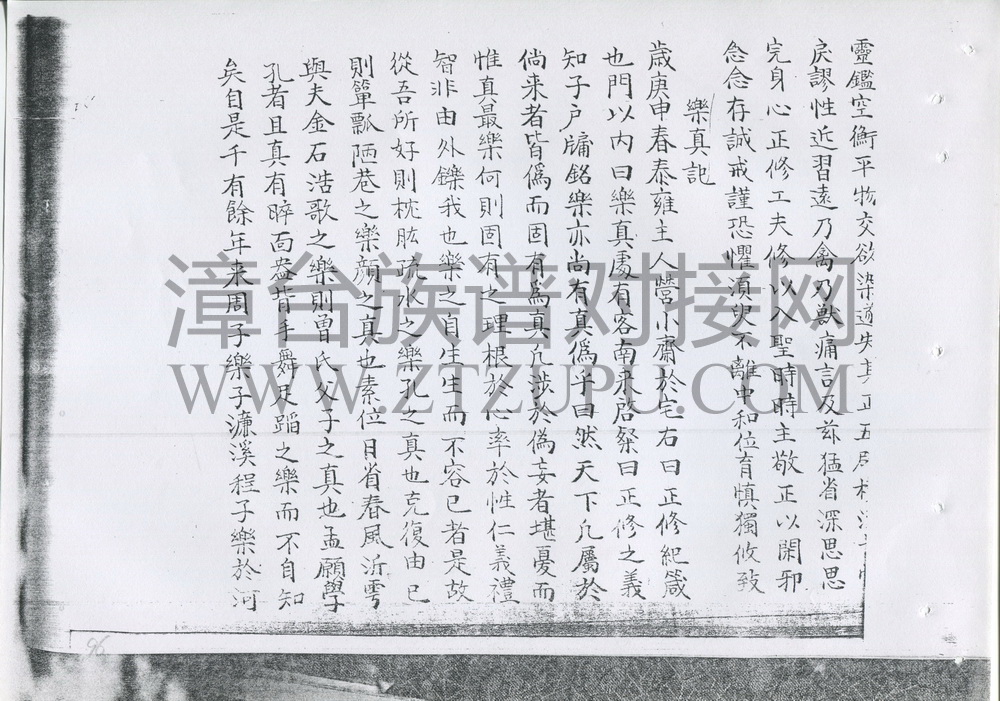 靈鑑空衡平物交欲染遒失其正五
戾謬性近習遠乃禽乃獸痛言及茲猛省深思思
完身心正修工夫修以入聖時時主敬正以閑邪
念念存誠戒謹恐懼須臾不離中和位育慎獨攸致
樂真記
歲庚申春泰雍主人營小齋於宅右曰正修紀箴
也門以內曰樂真處有客南來啓粲曰正修之義
知子户牖銘樂亦尚有真偽乎曰然天下凡屬於
倘来者皆偽而固有為真凡涉於偽妄者堪憂而
惟真最樂何則固有之理根於心率於性仁義禮
智非由外鑠我也樂之自生生而不容已者是故
從吾所好則枕肱疏水之樂孔之真也克復由已
則簞瓢陋巷之樂顏之真也素位日省春風沂雩
與夫金石浩歌之樂則曾氏父子之真也孟願學
孔者且真有睟面盎背手舞足蹈之樂而不自知
矣自是千有餘年来周子樂子濂溪程子樂於河
漳台族谱对接网
WWW.ZTZUPU.COM
96